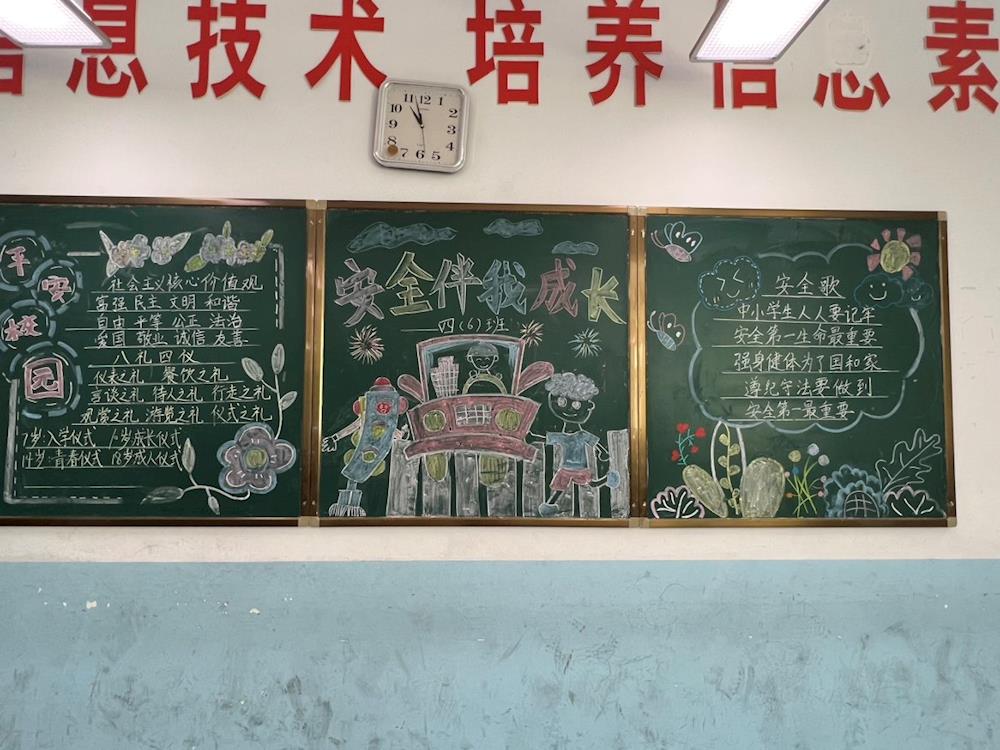 息技术 培养信息素
11 12 1
10 2
9 3
8 4
7 6 5
平安校园
社会主义核心价值观
富强 民主 文明 和谐
自由 平等 公正 法治
爱国 敬业 诚信 友善
八礼四仪
仪表之礼 餐饮之礼
言谈之礼 待人之礼 行走之礼
观赏之礼 游览之礼 仪式之礼
7岁:入学仪式 10岁成长仪式
14岁:青春仪式 18岁成人仪式
安全伴我成长
四(6)班
安全歌
中小学生人人要记牢
安全第一生命最重要
强身健体为了国和家
遵纪守法要做到
安全第一最重要